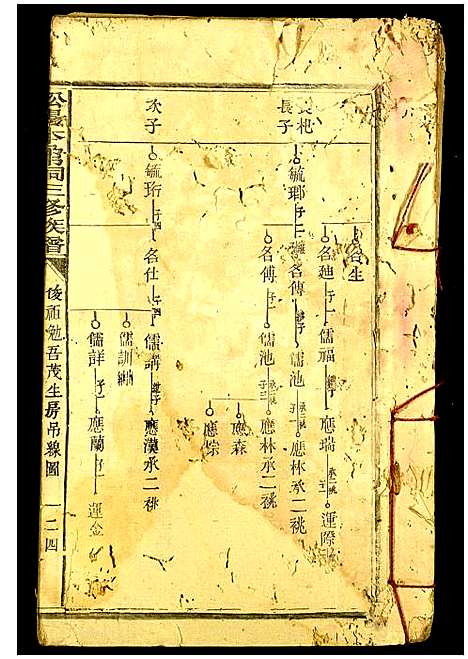 名生
名廸 子一 儒福 應瑞 承二祧 運際
長子
毓瑯 名傳 儒池 應林承二祧
名傳 子一 儒池 承二祧 子三 應林承二祧
應森
應宗
次子
毓珩 名仕 儒講 應漢承二祧
儒訓
儒詳 應蘭 運金
三修族譜
後祖勉吾茂生房吊線圖
一二四